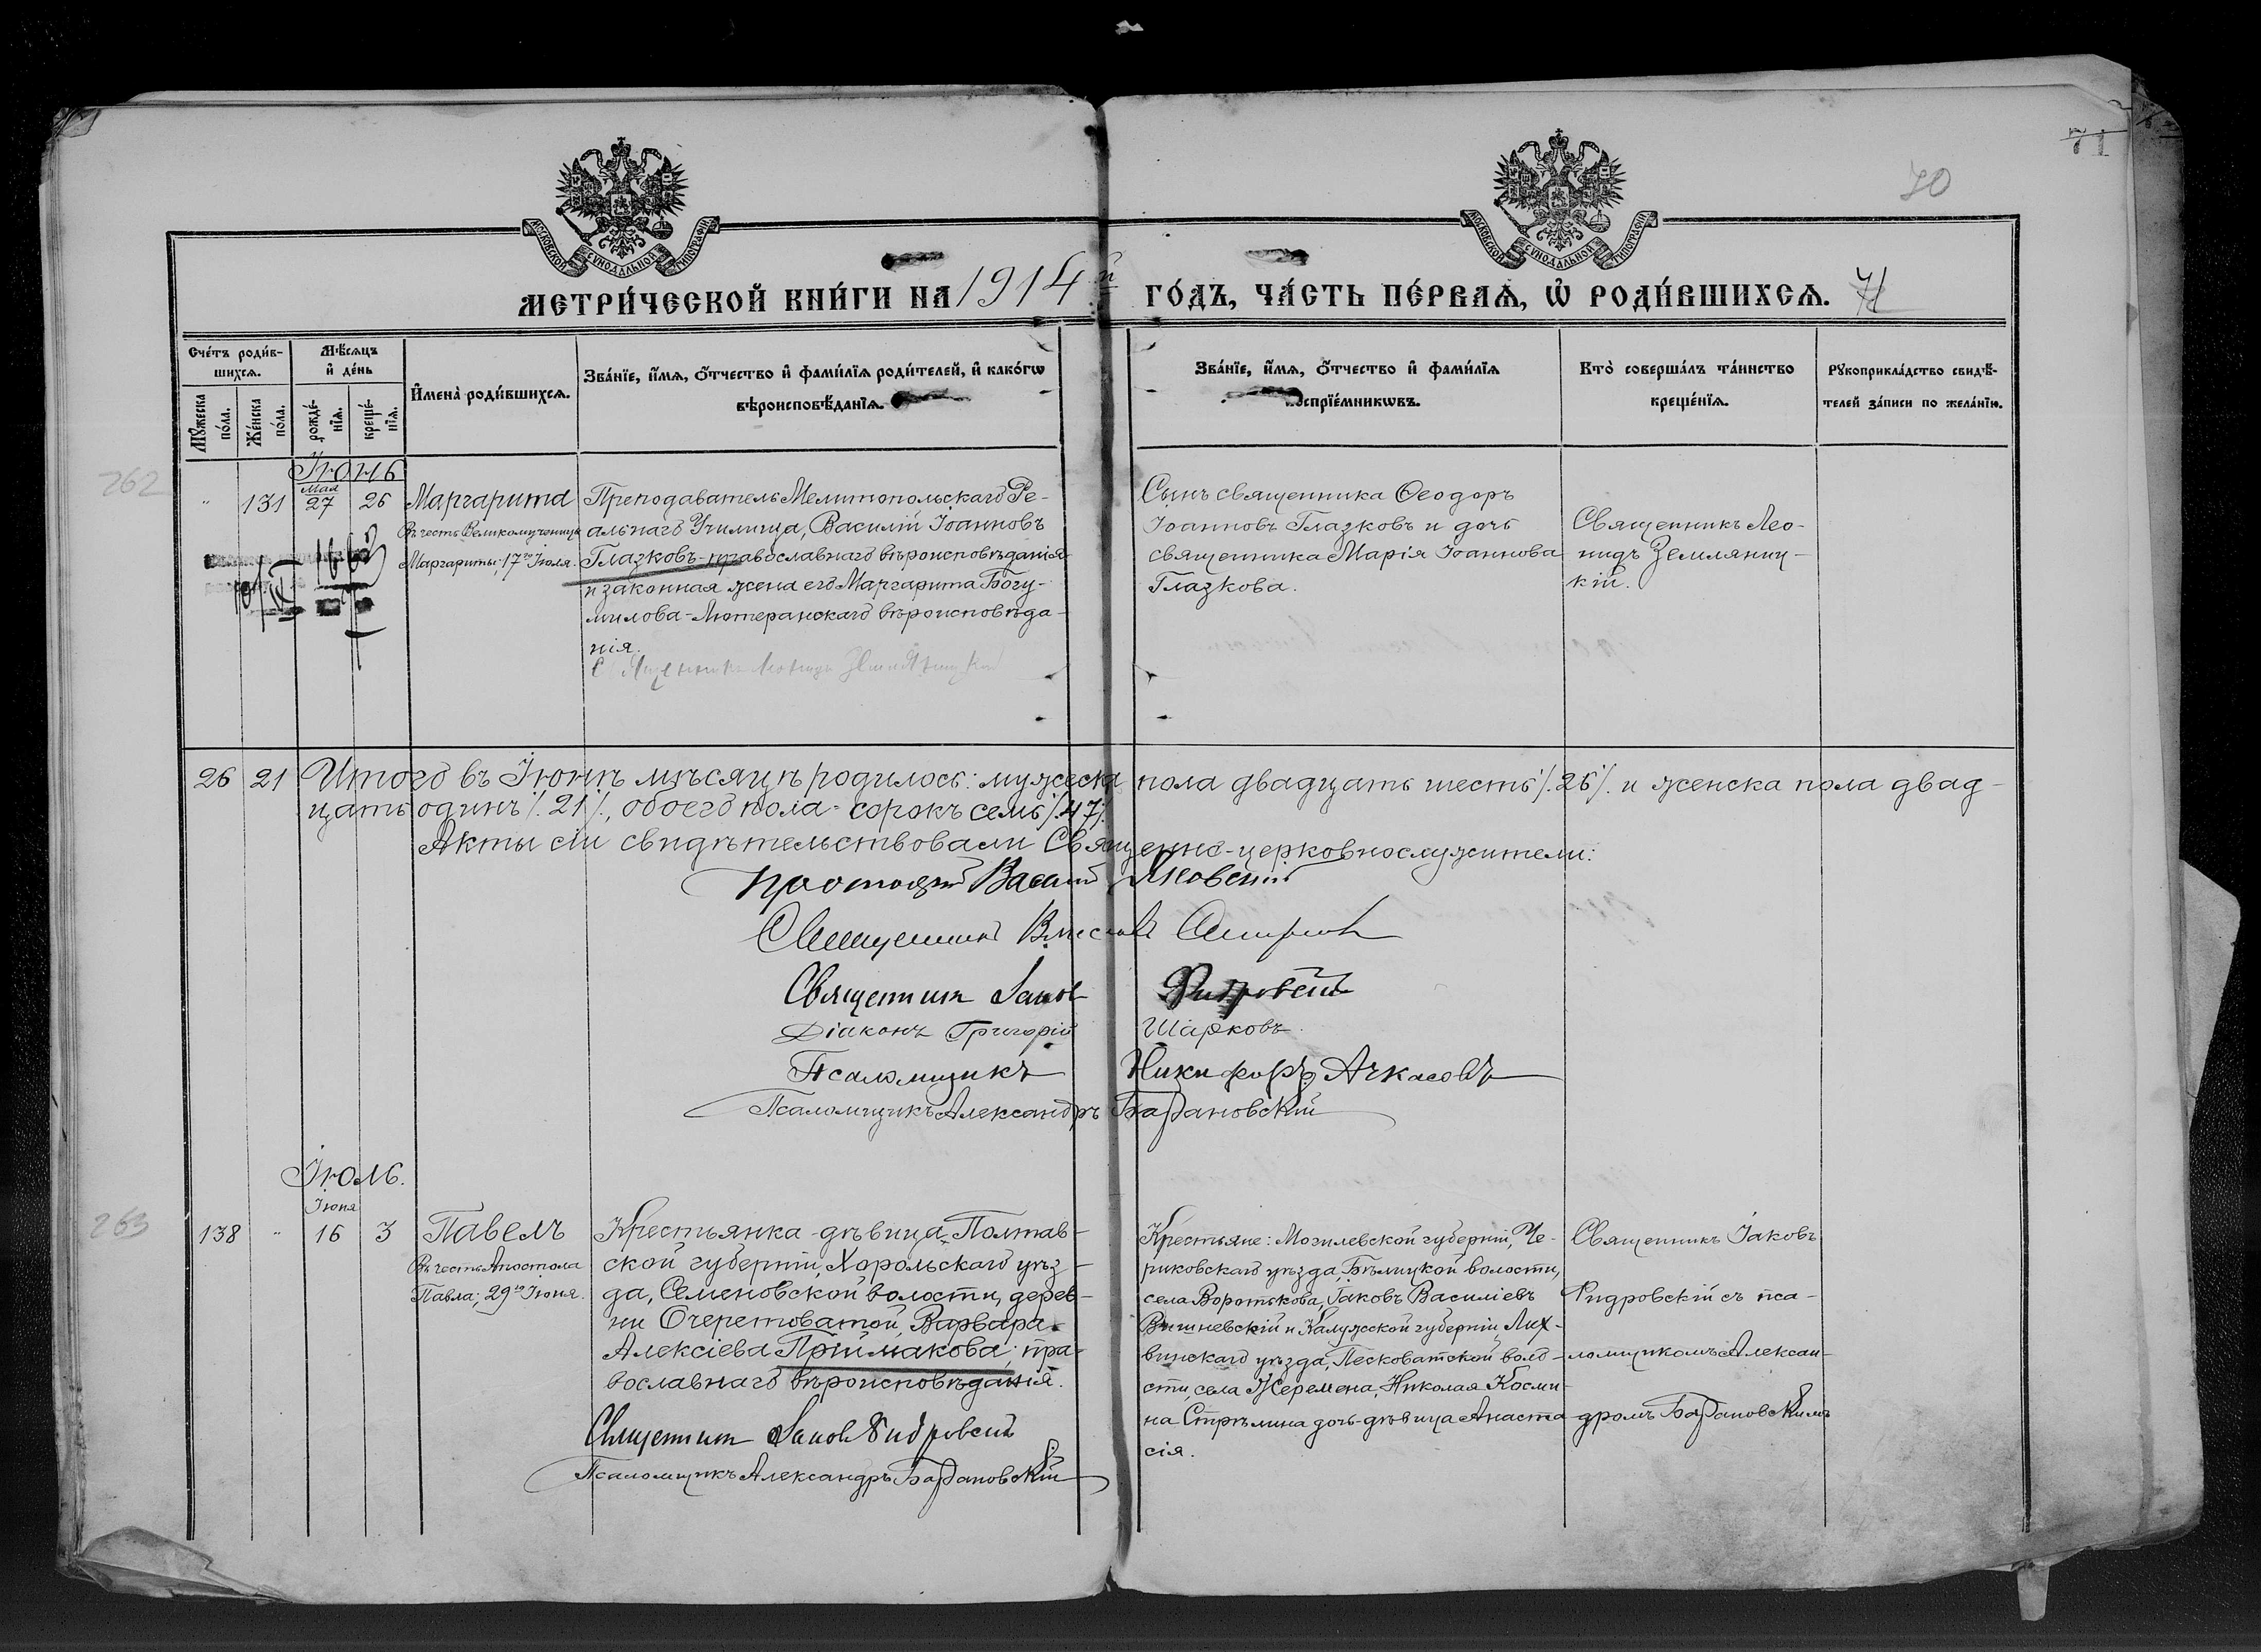 71
70
МОСКОВСКОЙ СѴНОДАЛЬНОЙ ТИПОГРАФІИ
МОСКОВСКОЙ СѴНОДАЛЬНОЙ ТИПОГРАФІИ
МЕТРИ́ЧЕСКОЙ КНИ́ГИ НА 1914й ГО́ДЪ, ЧА́СТЬ ПЕ́РВАѦ, Ѡ҆ РОДИ́ВШИХСѦ. 71
Сче́тъ роди́в-
шихсѧ.
Мꙋ́жеска по́ла.
Же́нска по́ла.
Мѣ́сѧцъ
и҆ де́нь
рожде́-нїѧ.
креще́-нїѧ.
И҆мена̀ роди́вшихсѧ.
Зва́нїе, и҆́мѧ, ѻ҆́тчество и҆ фами́лїѧ роди́телей, и҆ како́гѡ
вѣроисповѣ́данїѧ.
Зва́нїе, и҆́мѧ, ѻ҆́тчество и҆ фами́лїѧ
воспрїе́мникѡвъ.
Кто̀ соверша́лъ та́инство
креще́нїѧ.
Рꙋкоприкла́дство свидѣ́-
телей за́писи по жела́нїю.
262
Іюнь
Мая
" 131 27 26
Маргарита
Въ честь Великомученицы
Маргариты; 17го Іюля.
Преподаватель Мелитопольскаго Ре-
альнаго Училища, Василій Іоанновъ
Глазковъ - православнаго вѣроисповѣданія
и законная жена его Маргарита Богу-
милова - Лютеранскаго вѣроисповѣда-
нія.
Священникъ Леонидъ Земляницкій
Сынъ священника Ѳеодоръ
Іоанновъ Глазковъ и дочь
священника Марія Іоаннова
Глазкова.
Священникъ Лео-
нидъ Земляниц-
кій.
26 21 Итого въ Іюнѣ мѣсяцѣ родилось: мужеска пола двадцать шесть /.26/. и женска пола двад-
цать одинъ /.21/., обоего пола - сорокъ семь /.47/.
Акты сіи свидѣтельствовали Священно-церковнослужители:
Протоіерей Василій
Священникъ
Священникъ Іаковъ Фидровскій
Діаконъ Григорій Шарковъ.
Псаломщикъ Никифоръ Ачкасовъ
Псаломщикъ Александръ Барановскій
Іюль.
263
Іюня
138 " 16 3
Павелъ
Въ честь Апостола
Павла; 29го Іюня.
Крестьянка-дѣвица, Полтав-
ской губерніи, Хорольскаго уѣз-
да, Семеновской волости, дерев-
ни Очеретоватой, Варвара
Алексіева Пріймакова; пра-
вославнаго вѣроисповѣданія.
Священникъ Іаковъ Фидровскій
Псаломщикъ Александръ Барановскій
Крестьяне: Могилевской губерніи, Че-
риковскаго уѣзда, Бѣлицкой волости,
села Воротькова, Іаковъ Василіевъ
Вишневскій и Калужской губерніи, Лих-
винскаго уѣзда, Песковатской воло-
сти, села Жеремена, Николая Косми-
на Стрѣлина дочь-дѣвица Анаста-
сія.
Священникъ Іаковъ
Фидровскій съ пса-
ломщикомъ Алексан-
дромъ Барановскимъ